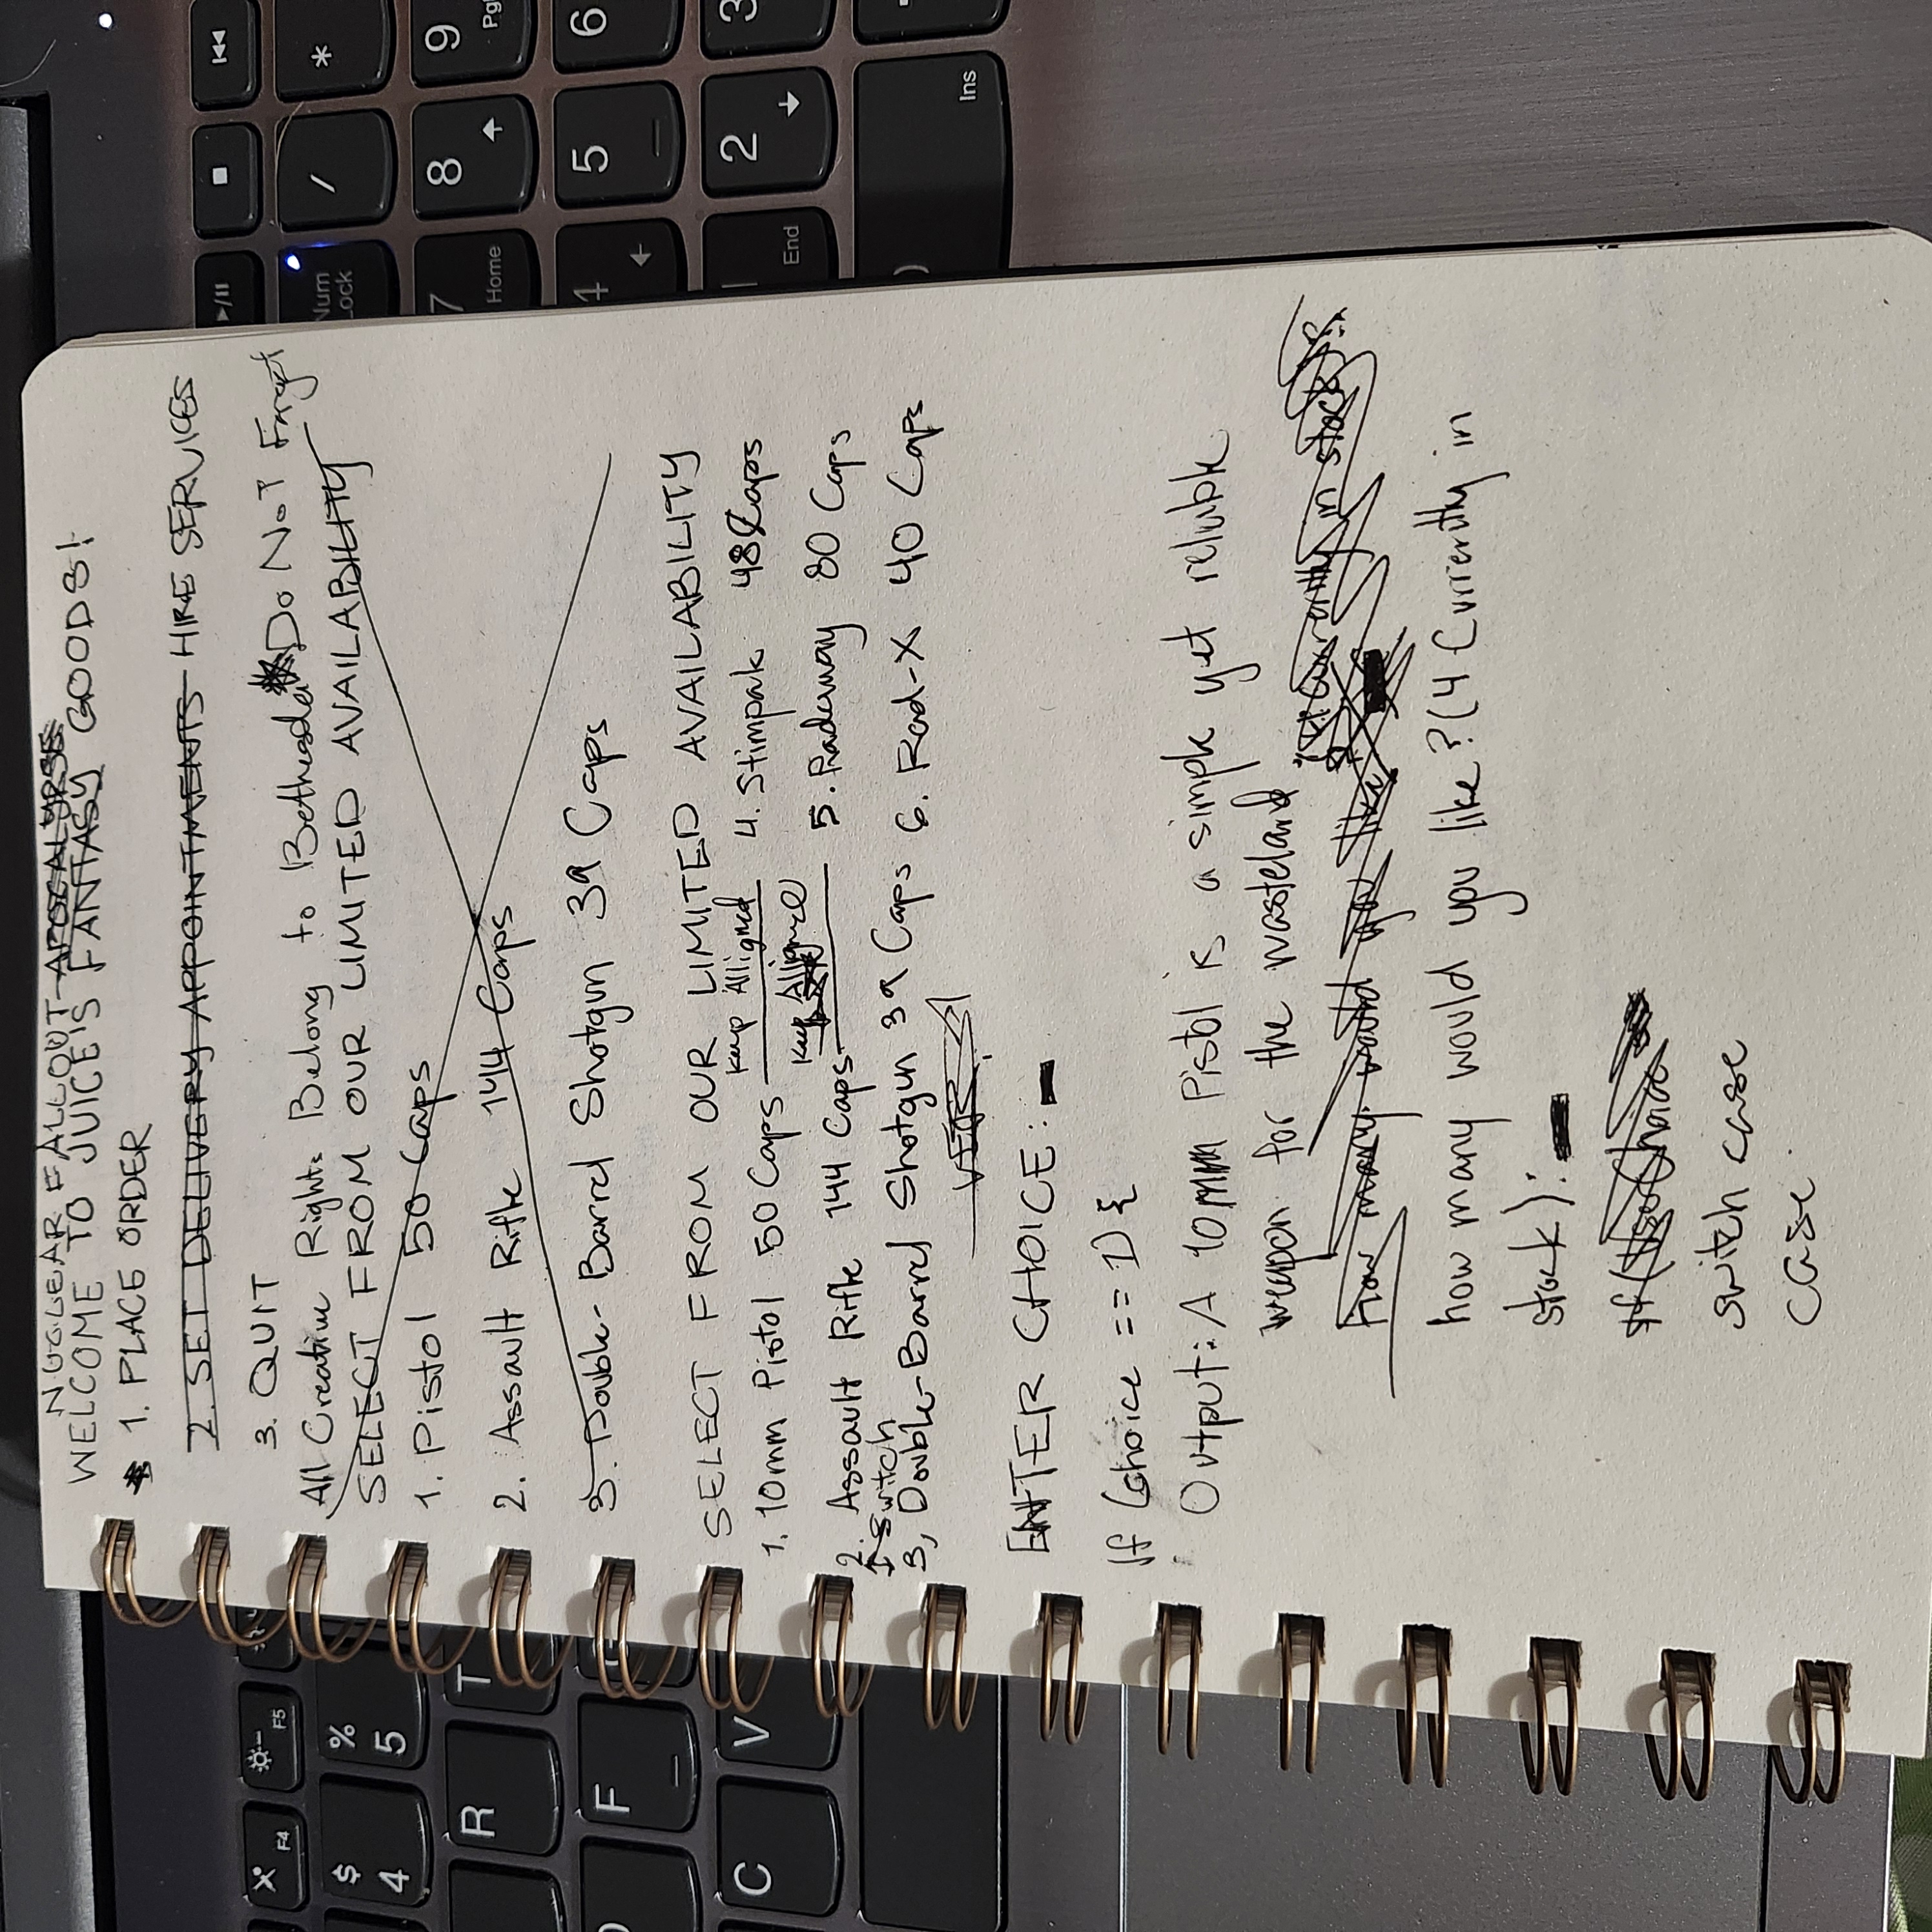 NUCLEAR FALLOUT APOCALYPSE
WELCOME TO JUICE'S FANTASY GOODS!
1. PLACE ORDER
2. SET DELIVERY APPOINTMENTS HIRE SERVICES
3. QUIT
All Creative Rights Belong to Bethesda Do Not Forget
SELECT FROM OUR LIMITED AVAILABILITY
1. Pistol 50 Caps
2. Assault Rifle 144 Caps
3. Double-Barrel Shotgun 39 Caps
SELECT FROM OUR LIMITED AVAILABILITY
1. 10mm Pistol 50 Caps Keep Alligned 4. Stimpak 48 Caps
2. Assault Rifle 144 Caps Keep Alligned 5. Radaway 80 Caps
↕ Switch
3, Double-Barrel Shotgun 39 Caps 6. Rad-X 40 Caps
ENTER CHOICE:
If (choice == 1) {
Output: A 10mm Pistol is a simple yet reliable
weapon for the wasteland
(4 currently in stock)?
How many would you like
how many would you like? (4 Currently in
stock):
If (UserChoice ==
switch case
case
$ 4
% 5
F4
F5
R
T
F
C
V
Num Lock
/
*
7 Home
8
9 Pg
4
5
6
1 End
2
3
Ins